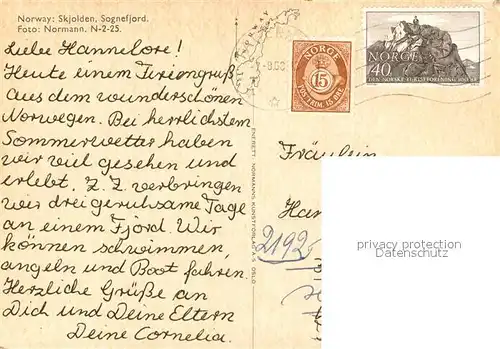 Norway: Skjolden, Sognefjord.
Foto: Normann. N-2-25.
Liebe Hannelore!
Heute einem Feriengruß
aus dem wunderschönen
Norwegen. Bei herrlichstem
Sommerwetter haben
wir viel gesehen und
erlebt. Z. Z. verbringen
wir drei geruhsame Tage
an einem Fjord. Wir
können schwimmen,
angeln und Boot fahren.
Herzliche Grüße an
Dich und Deine Eltern
Deine Cornelia.
ENERETT: NORMANNS KUNSTFORLAG A/S, OSLO
NORGE
15
POSTFRIM. 15 ØRE
NORGE
40
DEN NORSKE TURISTFORENING 1868-1968
Fräulein
Han
2192
privacy protection
Datenschutz